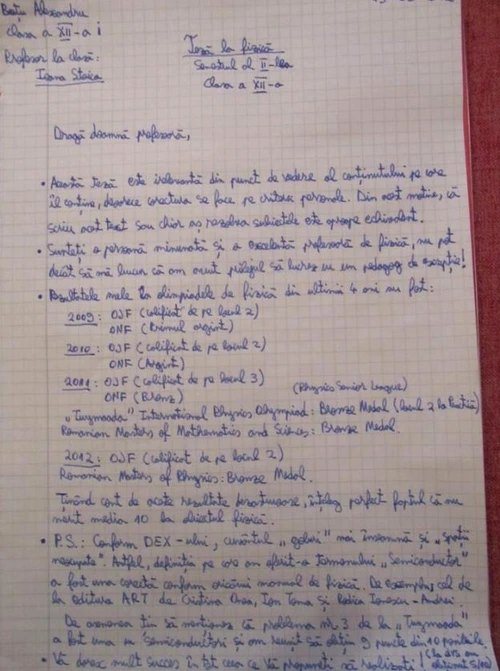 Bețiu Alexandru
Clasa a XII-a i
Profesor la clasă:
Ioana Stoica
Teză la fizică
Semestrul al II-lea
Clasa a XII-a
Dragă doamnă profesoară,
• Această teză este irelevantă din punct de vedere al conținutului pe care
îl conține, deoarece corectura se face pe criterii personale. Din acest motiv, că
scriu acest text sau chiar aș rezolva subiectele este aproape echivalent.
• Sunteți o persoană minunată și o excelentă profesoară de fizică, nu pot
decât să mă bucur că am avut prilejul să lucrez cu un pedagog de excepție!
• Rezultatele mele la olimpiadele de fizică din ultimii 4 ani au fost:
2009: OJF (calificat de pe locul 2)
ONF (Primul argint)
2010: OJF (calificat de pe locul 2)
ONF (Argint)
2011: OJF (calificat de pe locul 3)
ONF (Bronz)
(Physics Senior League)
„Tuymaada" International Physics Olympiad: Bronze Medal (locul 2 la Practică)
Romanian Masters of Mathematics and Sciences: Bronze Medal.
2012: OJF (calificat de pe locul 2)
Romanian Masters of Physics: Bronze Medal.
Ținând cont de aceste rezultate dezastruoase, înțeleg perfect faptul că nu
merit media 10 la obiectul fizică.
• P.S.: Conform DEX-ului, cuvântul „goluri" mai înseamnă și „spații
neocupate". Astfel, definiția pe care am oferit-o termenului „Semiconductor"
a fost una corectă conform oricărui manual de fizică. De exemplu, cel de
la editura ART de Cristina Onea, Ion Toma și Rodica Ionescu-Andrei.
De asemenea țin să menționez că problema nr. 3 de la „Tuymaada"
a fost una cu Semiconductori și am reușit să obțin 9 puncte din 10 posibile
• Vă doresc mult succes în tot ceea ce vă propuneți să realizați!